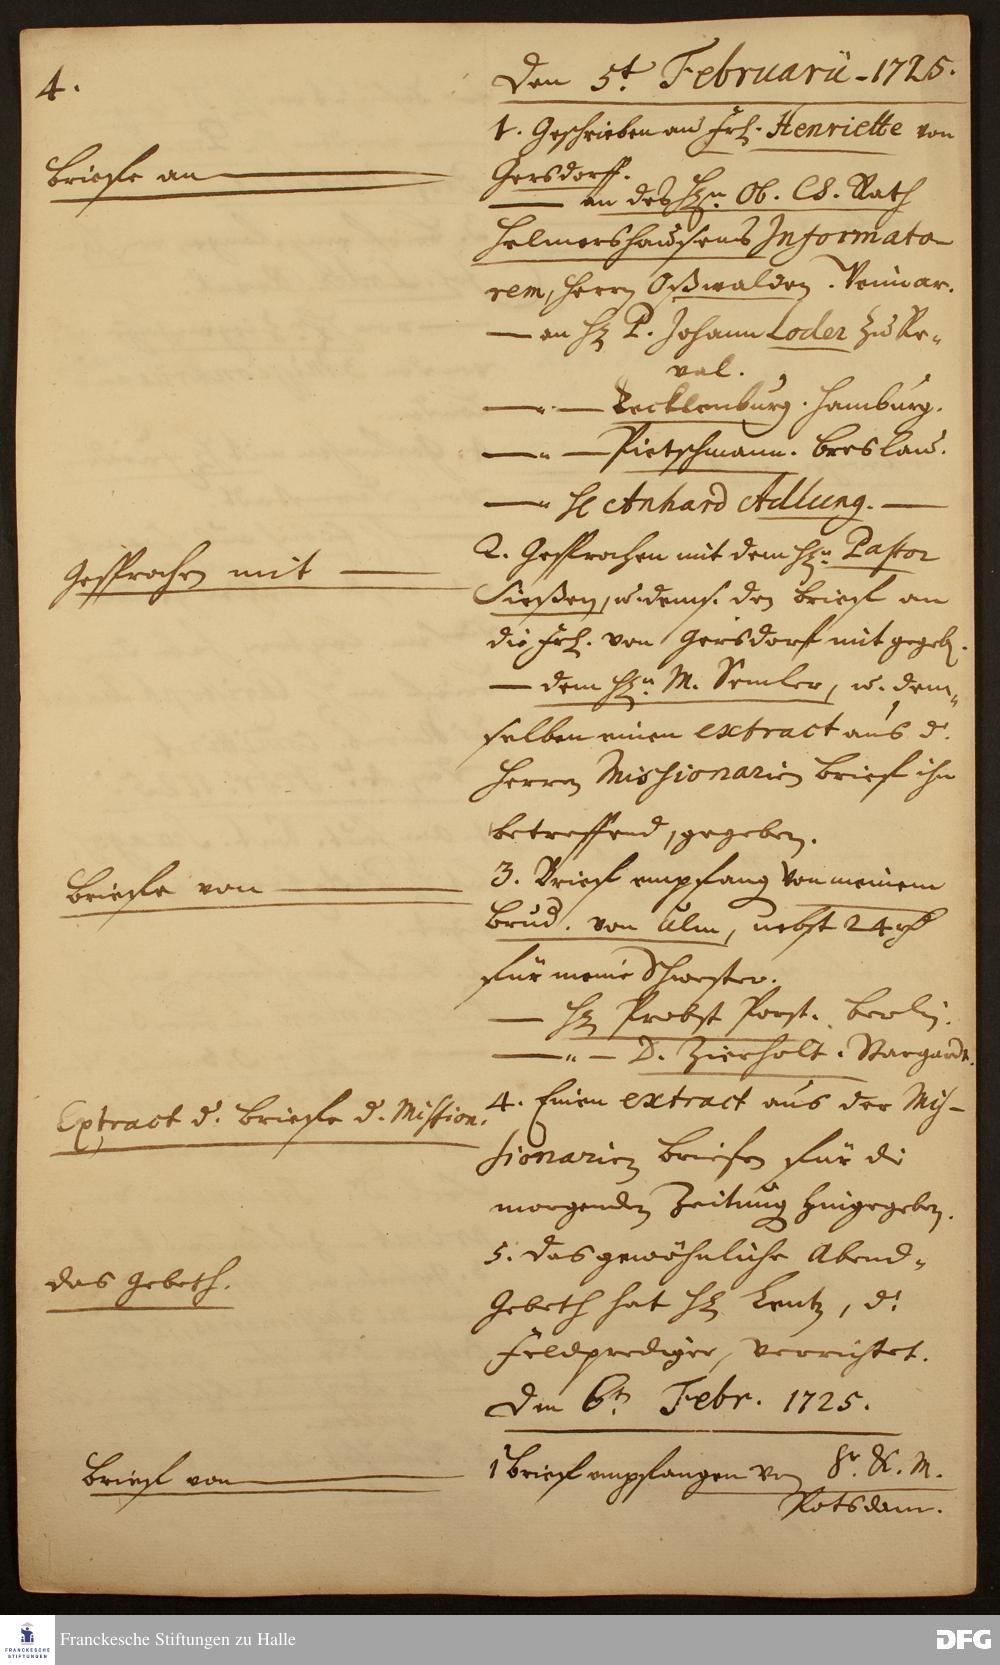 4.
Den 5t. Februarii - 1725.
1. Geschrieben an Frl. Henriette von
Briefe an
Gersdorff.
— an des Hrn. Ob. CS. Rath
Helmershausens Informato-
rem, Herrn Oßwalden. Veimar.
— an H. P. Johann Loder zu Re-
val.
— " — Recklenburg. Hamburg.
— " — Pietschmann. Breslau.
— " H Anhard Adlung. —
Gesprochen mit —
2. Gesprochen mit dem Hrn. Pastor
Sießen, u. dems. den brief an
die Frl. von Gersdorff mit gegeb.
— dem Hrn. M. Semler, u. dem-
selben einen extract aus d.
Herren Missionarien brief ihn
betreffend, gegeben.
Briefe von —
3. Brief empfang von meinem
Brud. von Ulm, nebst 24
für meine Schwester.
— H Probst Porst. Berlin.
— " — D. Zierholt. Stargardt.
Extract d. briefe d. Mission.
4. Einen extract aus der Mis-
sionarien briefen für die
morgenden Zeitung hingegeben.
5. Das gewöhnliche Abend-
das Gebeth.
Gebeth hat H Lentz, d.
Feldprediger, verrichtet.
Den 6t. Febr. 1725.
Brief von —
1 brief empfangen von Sr. K. M.
Potsdam.
Franckesche Stiftungen zu Halle
FRANCKESCHE
STIFTUNGEN
DFG